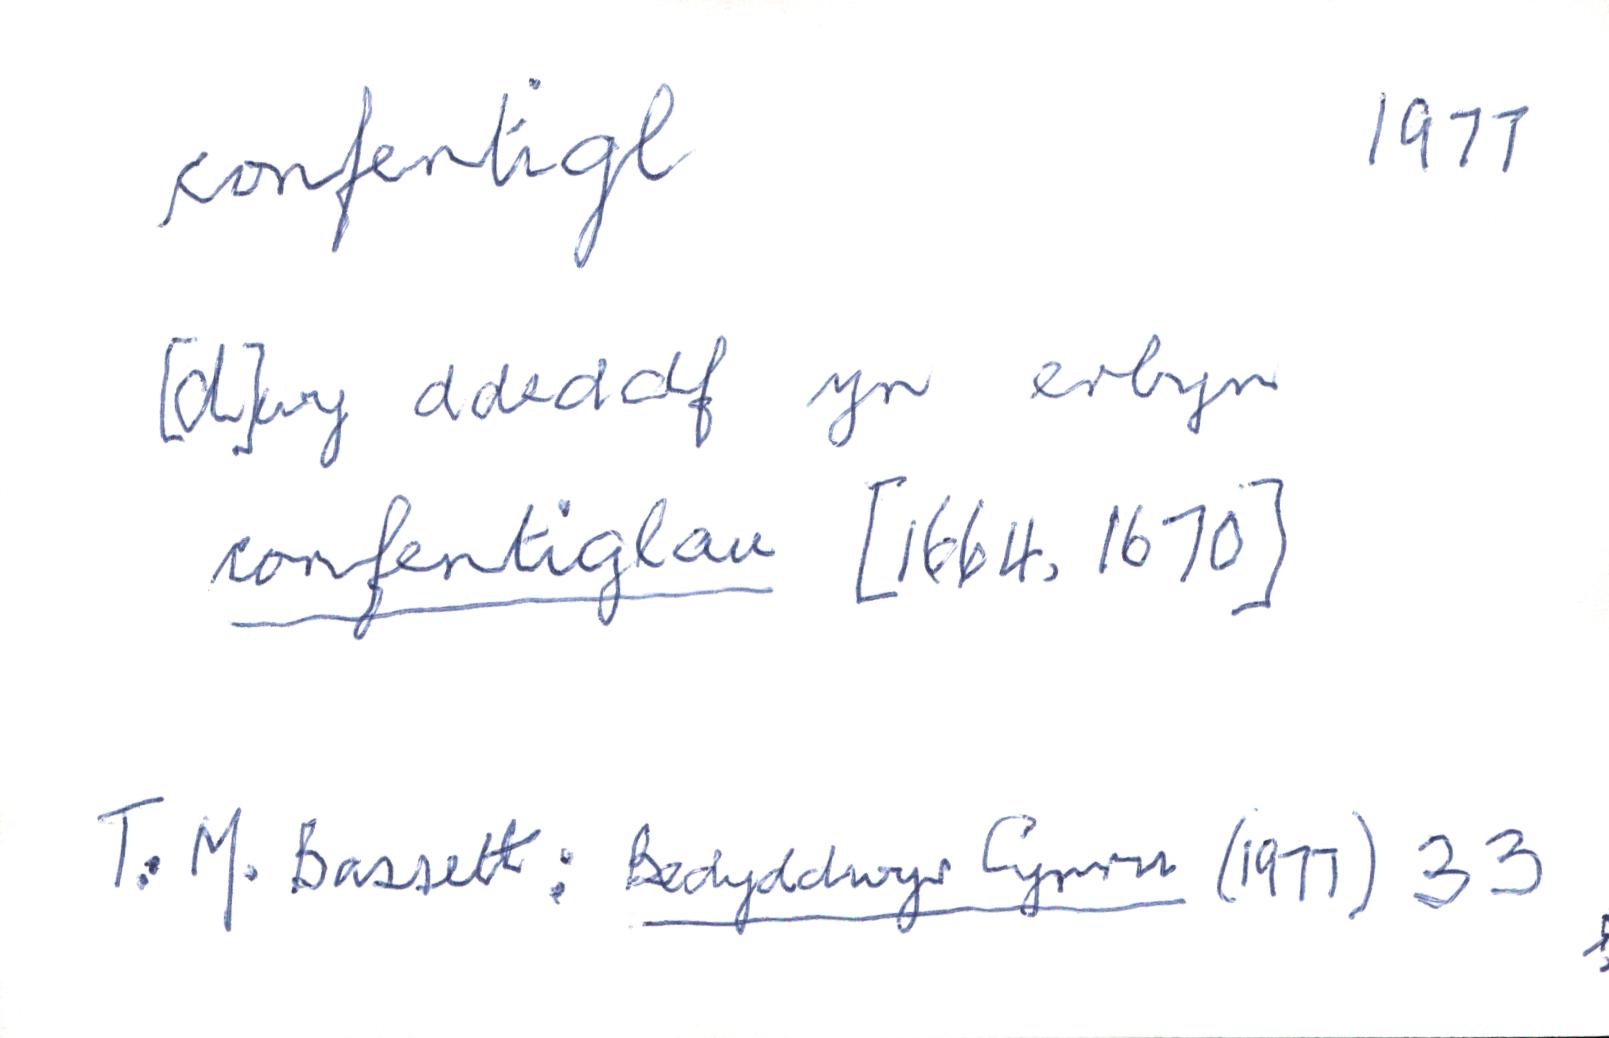 confentigl 1977
[d]wy ddeddf yn erbyn
confentiglau [1664, 1670]
T. M. Bassett: Bedyddwyr Cymru (1977) 33